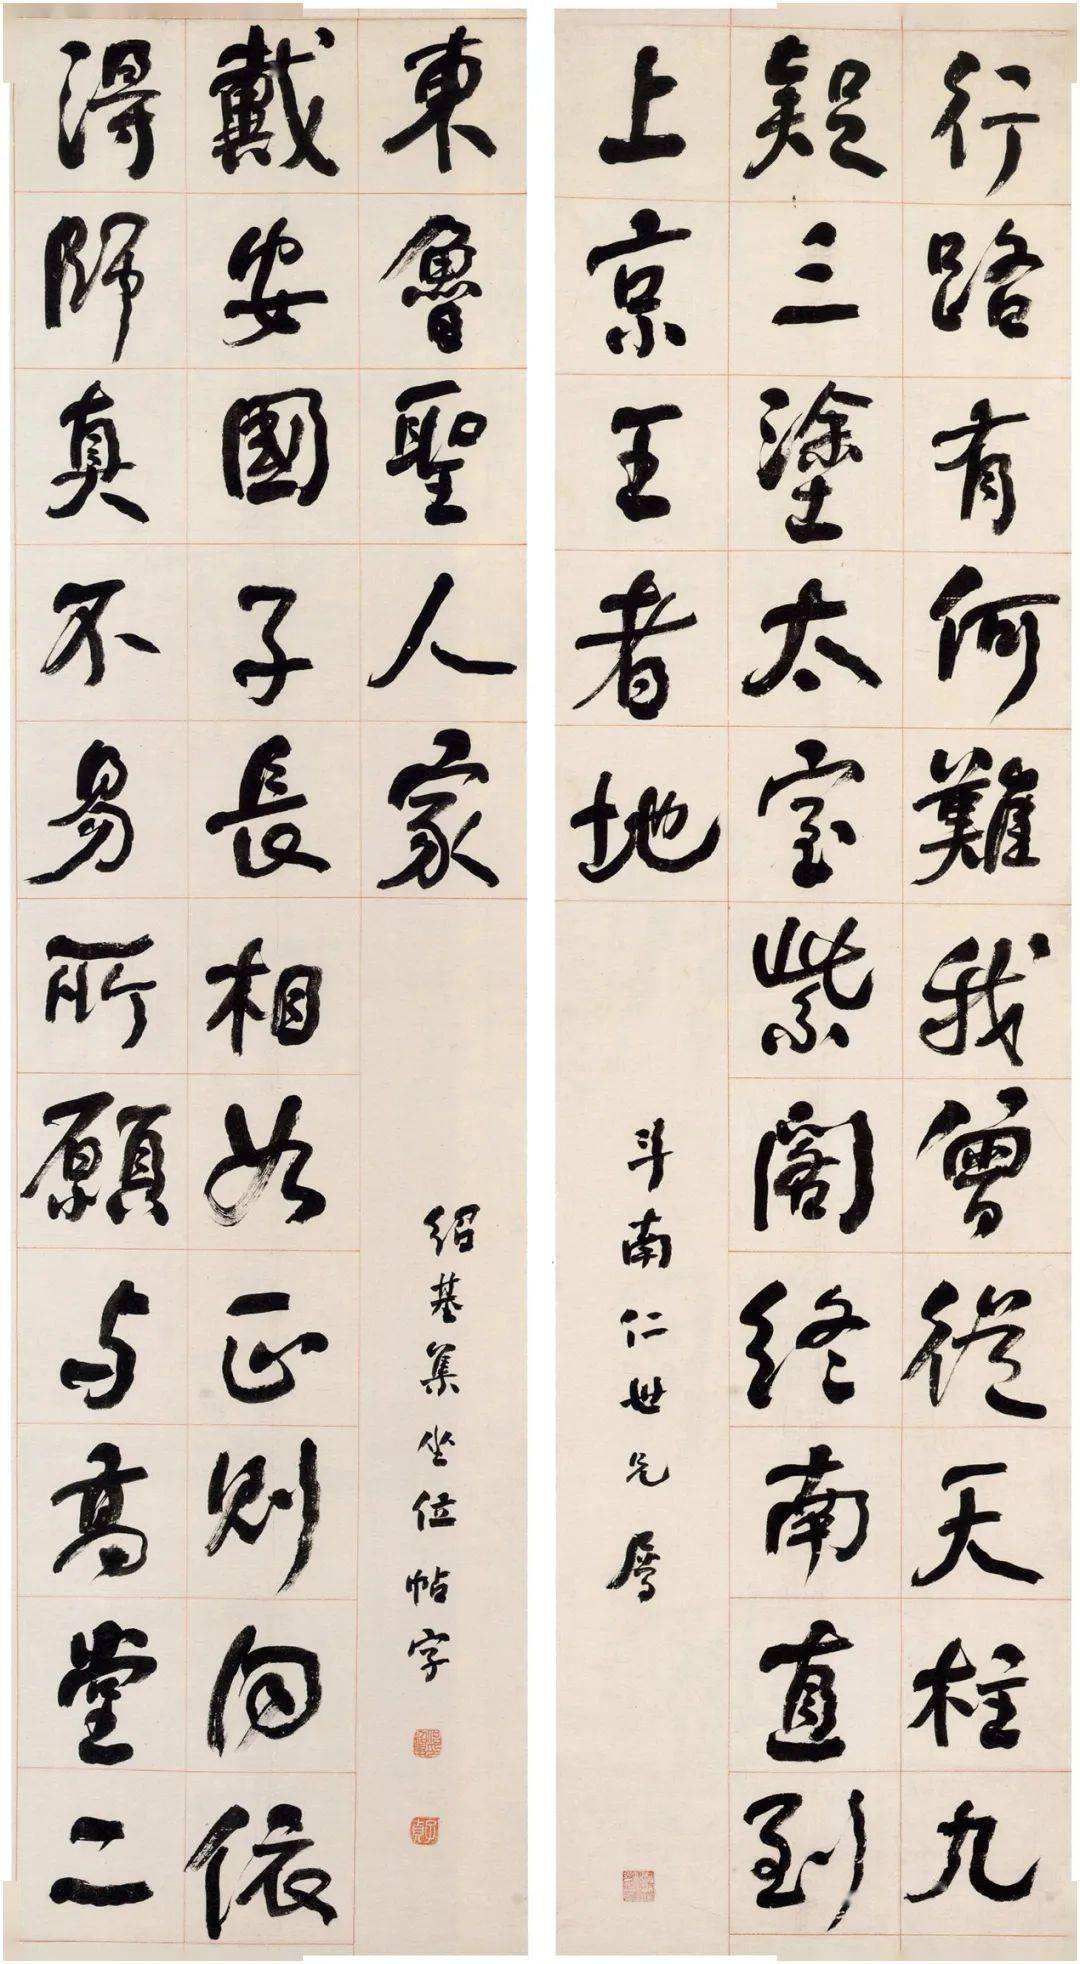 行路有何難我曾從天柱九
疑三塗太室紫閣終南直到
上京王者地
斗南仁世兄屬
得師真不易所願与高堂二
戴安國子長相如正則同依
東魯聖人家
紹基集坐位帖字
子貞